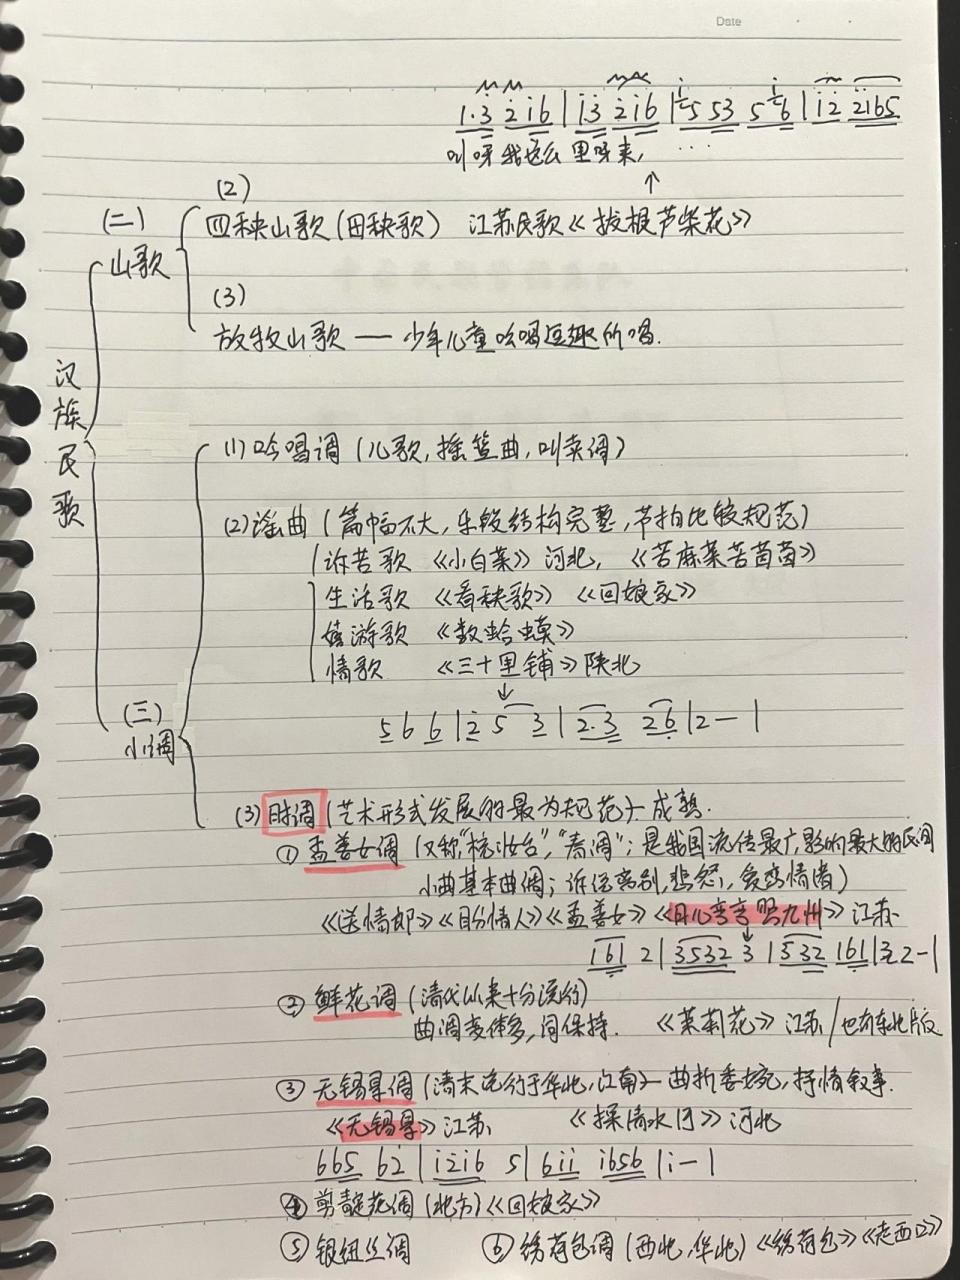 Date
1·3 2 1 6 | 1 3 2 1 6 | 5 53 5 6 | 1 2 2165
叫呀我这么里呀来, ...
(2)
(二) 四秧山歌(田秧歌) 江苏民歌《拔根芦柴花》
山歌
(3)
放牧山歌 — 少年儿童吟唱逗趣所唱.
汉族民歌
(1) 吟唱调 (儿歌, 摇篮曲, 叫卖调)
(2) 谣曲 (篇幅不大, 乐段结构完整, 节拍比较规范)
诉苦歌 《小白菜》河北, 《苦麻菜苦茵茵》
生活歌 《看秧歌》 《回娘家》
嬉游歌 《数蛤蟆》
情歌 《三十里铺》陕北
(三)
小调
5 6 6 | 2 5 3 | 2·3 26 | 2 — |
(3) 时调 (艺术形式发展的最为规范)—成熟.
① 孟姜女调 (又称"梳妆台", "春调"; 是我国流传最广, 影响最大的民间
小曲基本曲调; 诉说离别, 悲怨, 爱恋情绪)
《送情郎》《盼情人》《孟姜女》《月儿弯弯照九州》江苏
161 2 | 3532 3 | 1532 161 | 2 — |
② 鲜花调 (清代以来十分流行)
曲调变体多, 词保持. 《茉莉花》 江苏 / 也有东北版
③ 无锡景调 (清末流行于华北, 江南)— 曲折委婉, 抒情叙事.
《无锡景》江苏 《探清水河》河北
665 62 | 1216 5 | 611 1656 | 1 — |
④ 剪靛花调 (北方)《回娘家》
⑤ 银纽丝调 ⑥ 绣荷包调 (西北, 华北)《绣荷包》《走西口》